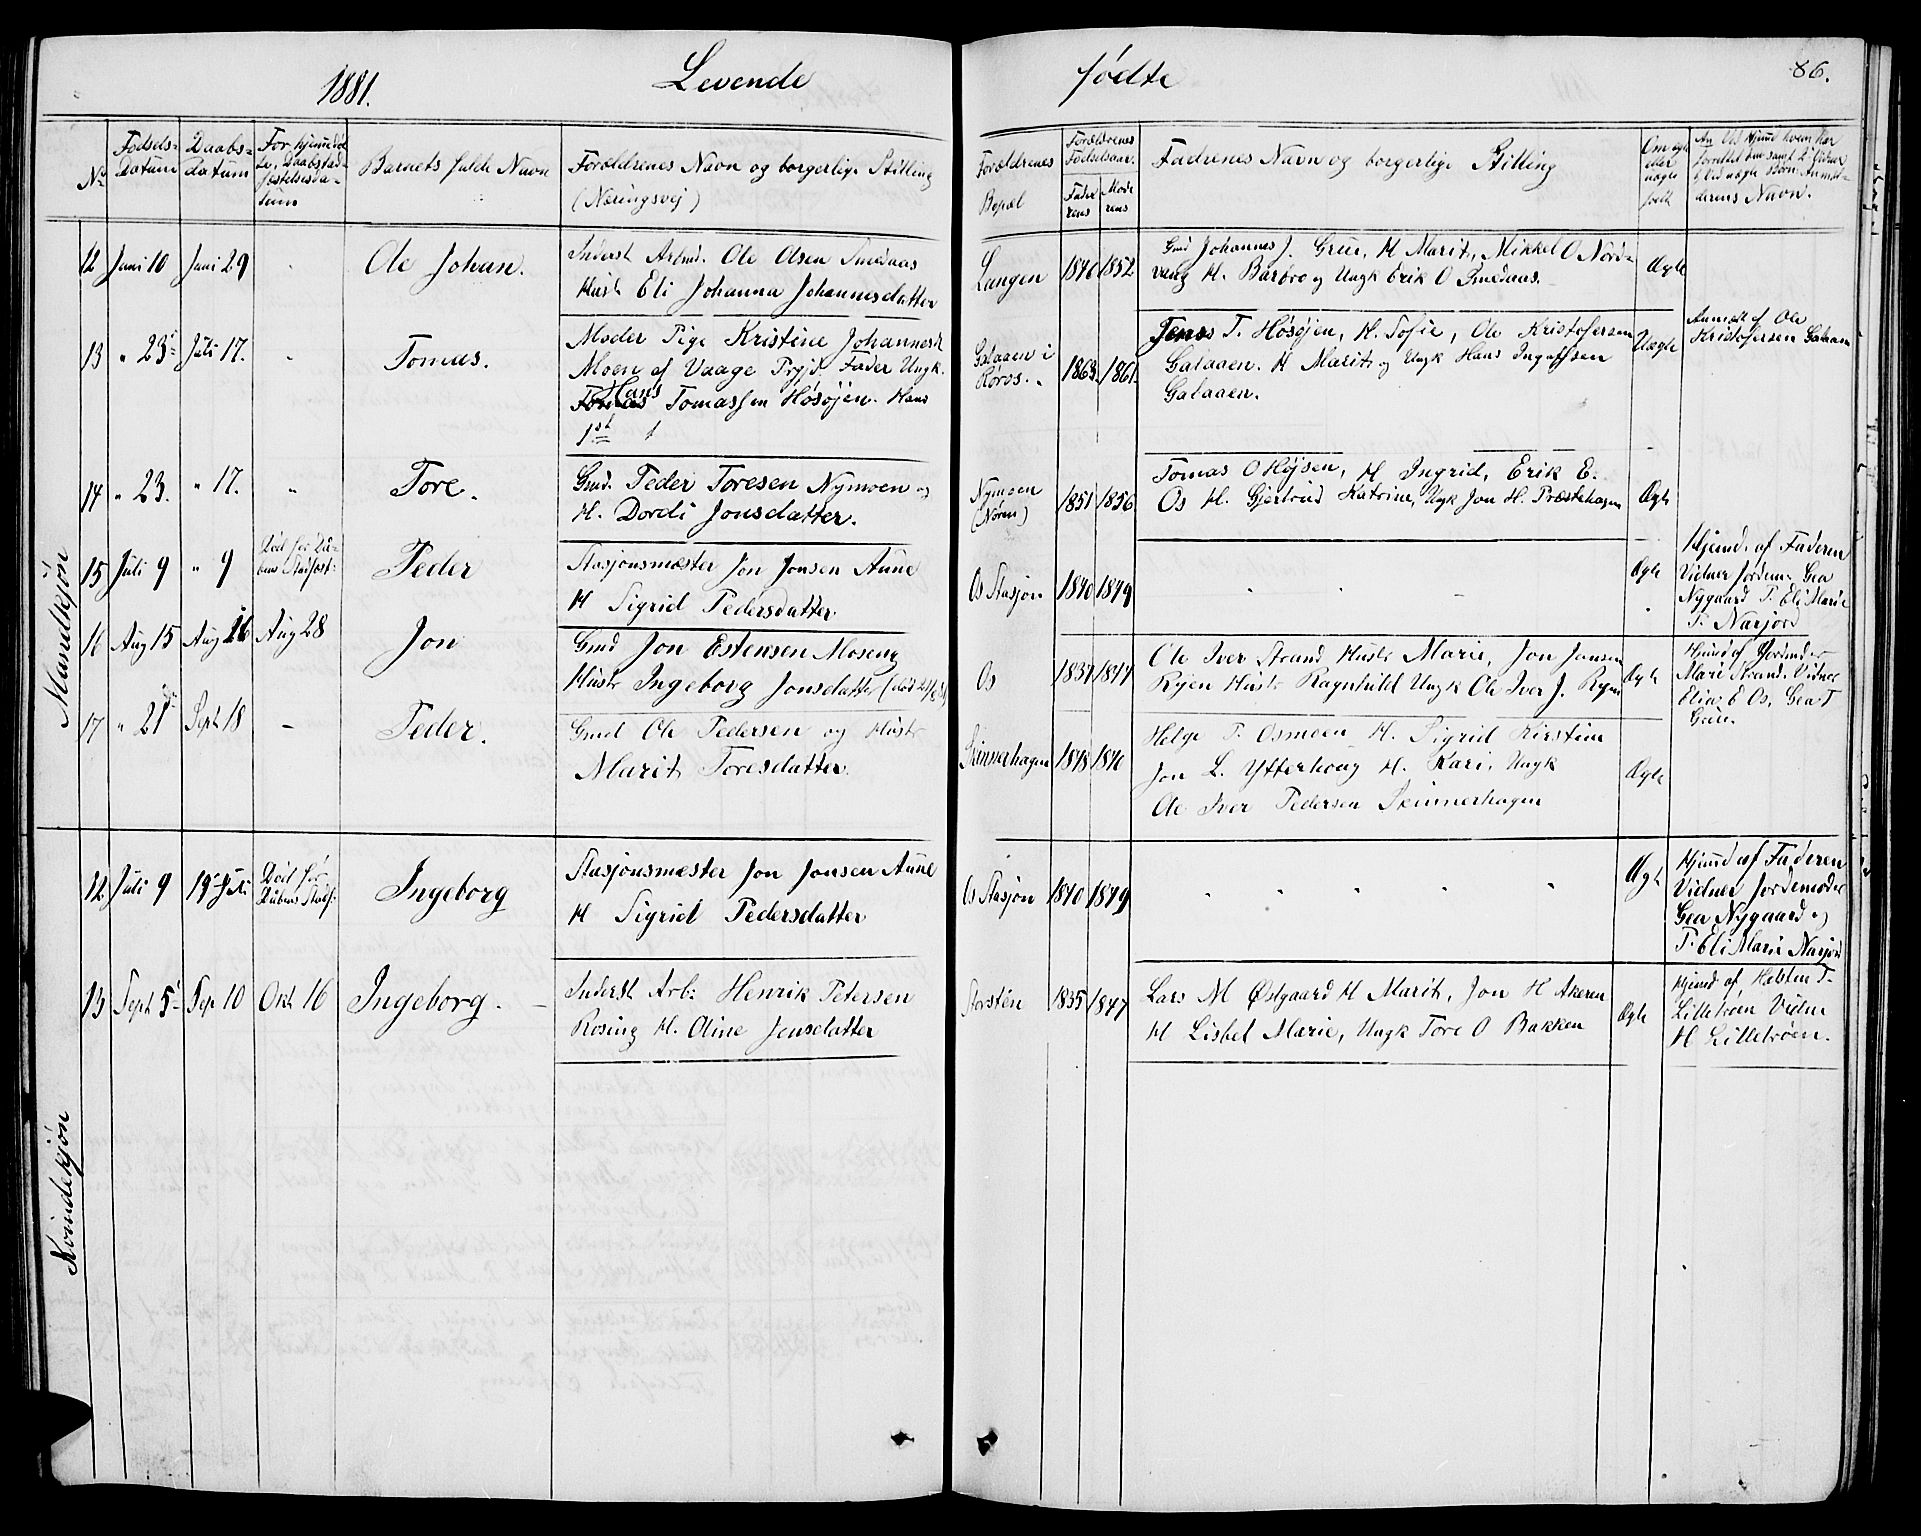 1881.
Levende
fødte
86.
No
Fødsels-
Datum
Daabs-
datum
For hjemmedøb-
te, Daabstad-
fæstelsesda-
tum
Barnets fulde Navn
Forældrenes Navn og borgerlige Stilling
(Næringsvej)
Forældrenes
Bopæl
Forældrenes
Fødselsaar.
Fade-
rens
Mode
rens
Fadrenes Navn og borgerlige Stilling
Om ægte
eller
uægte
født
derens Navn.
Mandkjøn
12 Juni 10 Juni 29 Ole Johan.
Inderst Arbmd. Ole Olsen Smedaas
Hust Eli Johanna Johannesdatter
Langen 1846 1852
Gmd Johannes J. Grue, H Marit, Mikkel O Nord-
vang H. Barbro og Ungk Erik O Smedaas.
Ægte
13 " 23 Juli 17. Tomas.
Moder Pige Kristine Johannesd
Moen af Vaage Prgjd. Fader Ungk.
Hans
Tomas Tomassen Høsøjen. Hans
1st
Galaaen i
Røros. 1863. 1861.
Jens T. Høsøjen, H. Sofie, Ole Kristofersen
Galaaen. H Marit og Ungk Hans Ingolfsen
Galaaen.
Uægte
Anmelt af Ole
Kristofersen Galaaen
14 " 23. " 17. " Tore.
Gmd. Peder Toresen Nymoen og
H. Dordi Jonsdatter.
Nymoen
(Nøren) 1851 1856
Tomas O Højsen, H Ingrid, Erik E.
Os H. Gjertrud Katrine, Ungk Jon H. Præstehagen
Ægte
15 Juli 9 " 9
Død før Da-
bens Stadfæst: Peder
Stasjonsmester Jon Jonsen Aune
H Sigrid Pedersdatter.
Os Stasjon 1840 1849
Ægte
Hjemd. af Faderen
Vidner Jordem. Gea
Nygaard P. Eli Marie
P. Narjord
16 Aug 15 Aug 16 Aug 28 Jon
Gmd Jon Estensen Moseng
Hustr Ingeborg Jonsdatter
Os 1837 1844
Ole Iver Strand Hustr Marie, Jon Jonsen
Ryen Hustr Ragnhild Ungk Ole Iver J. Ryen
Ægte
Hjemd af Jordmder
Mari Strand. Vidner
Elias E Os, Gea T
Grue.
17 " 21 Sept 18 – Peder.
Gmd Ole Pedersen og Hustr
Marit Toresdatter.
Skinnerhagen 1848 1840
Helge P. Osmoen H. Sigrid Kirstine
Jon L. Ytterhoug H. Kari, Ungk
Ole Iver Pedersen Skinnerhagen
Ægte
Kvindekjøn
12 Juli 9 19 Juli
Død før
Daabens Stadf: Ingeborg
Stasjonsmester Jon Jonsen Aune
H Sigrid Pedersdatter
Os Stasjon 1840 1849
" " " " "
Ægt
Hjemd af Faderen
Vidner Jordemoder
Gea Nygaard og
P. Eli Marie Narjord
13 Sept 5 Sep 10 Okt 16 Ingeborg. –
Inderst Arb: Henrik Petersen
Rosing H. Oline Jensdatter
Storstén 1835 1847
Lars M Østgaard H Marit, Jon H Akeren
H Lisbet Marie, Ungk Tore O Bakken
Ægte
Hjemd af Halsten T.
Lilletrøen Vidne
H Lilletrøen.